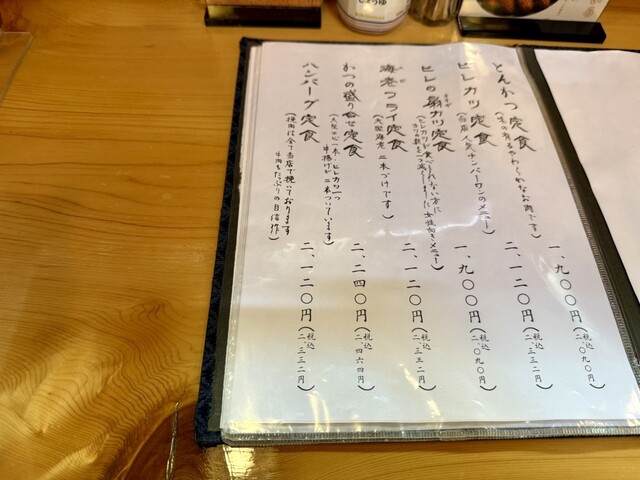 じょうゆ
とんかつ定食
(味のあるやわらかなお肉です)
一、九〇〇円(税込 二、〇九〇円)
ヒレカツ定食
(当店人気ナンバーワンのメニュー)
二、一二〇円(税込 二、三三二円)
ヒレの カツ定食
(ヒレカツが食べきれない方に
カツの数を一つ減らしました 女性向きメニュー)
一、九〇〇円(税込 二、〇九〇円)
海老フライ定食
(大型海老 二本づけです)
二、一二〇円(税込 二、三三二円)
かつの盛り合せ定食
(大型エビ一本・ヒレカツ一つ
串揚げが二本ついています)
二、二四〇円(税込 二、四六四円)
ハンバーグ定食
(挽肉は全て当店で挽いております
牛肉をたっぷりの自信作)
二、一二〇円(税込 二、三三二円)